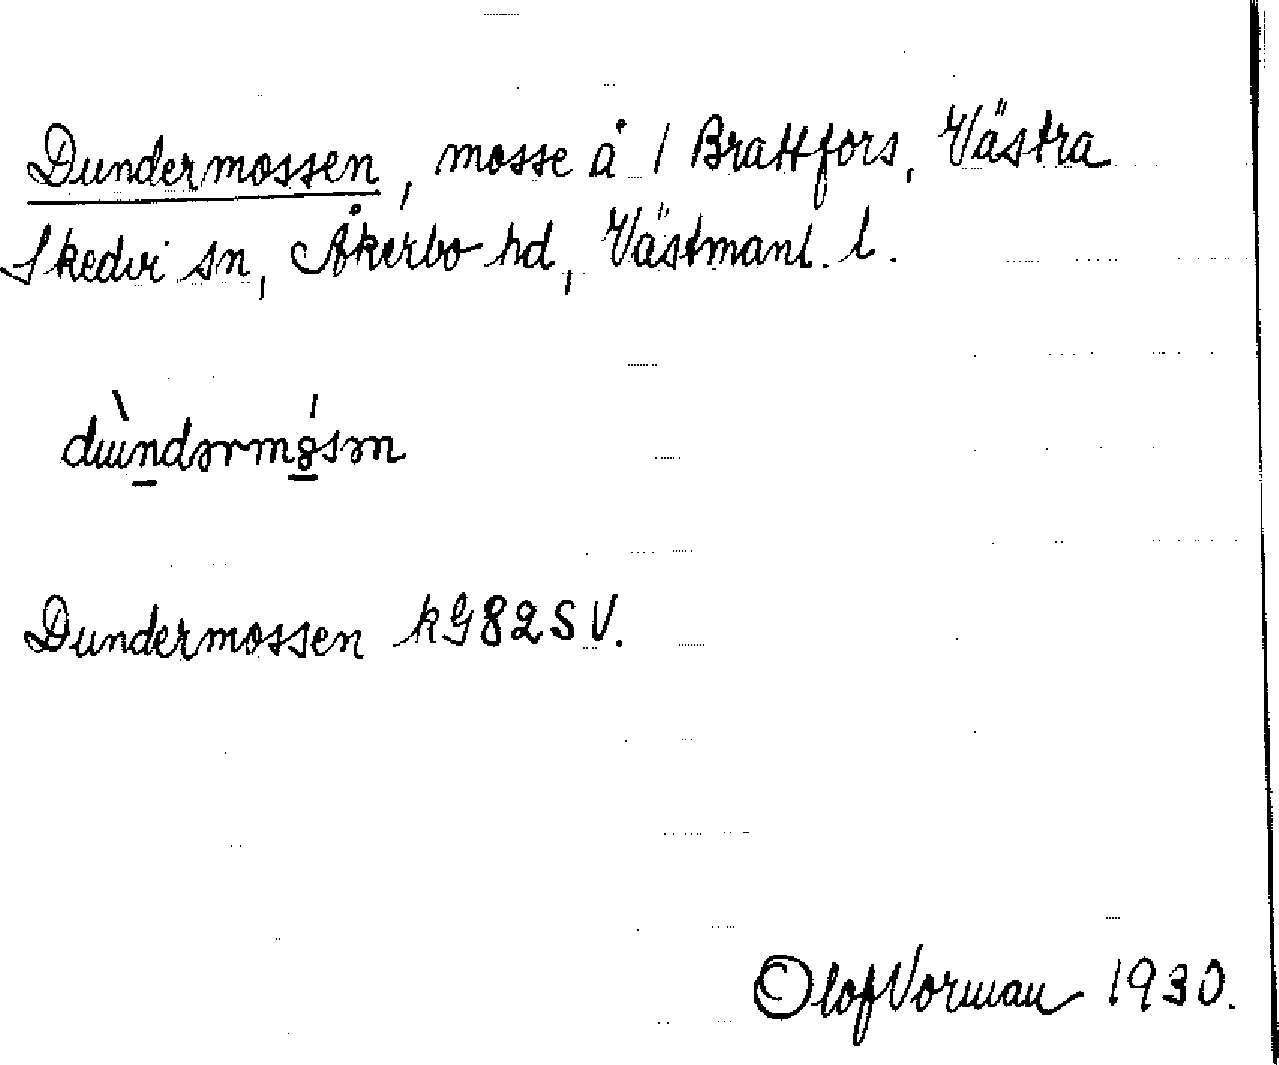 Dundermossen, mosse å / Brattfors, Västra
Skedvi sn, Åkerbo hd, Västmanl. l.
dùndərmósən
Dundermossen kG82SV.
Olof Vorman 1930.